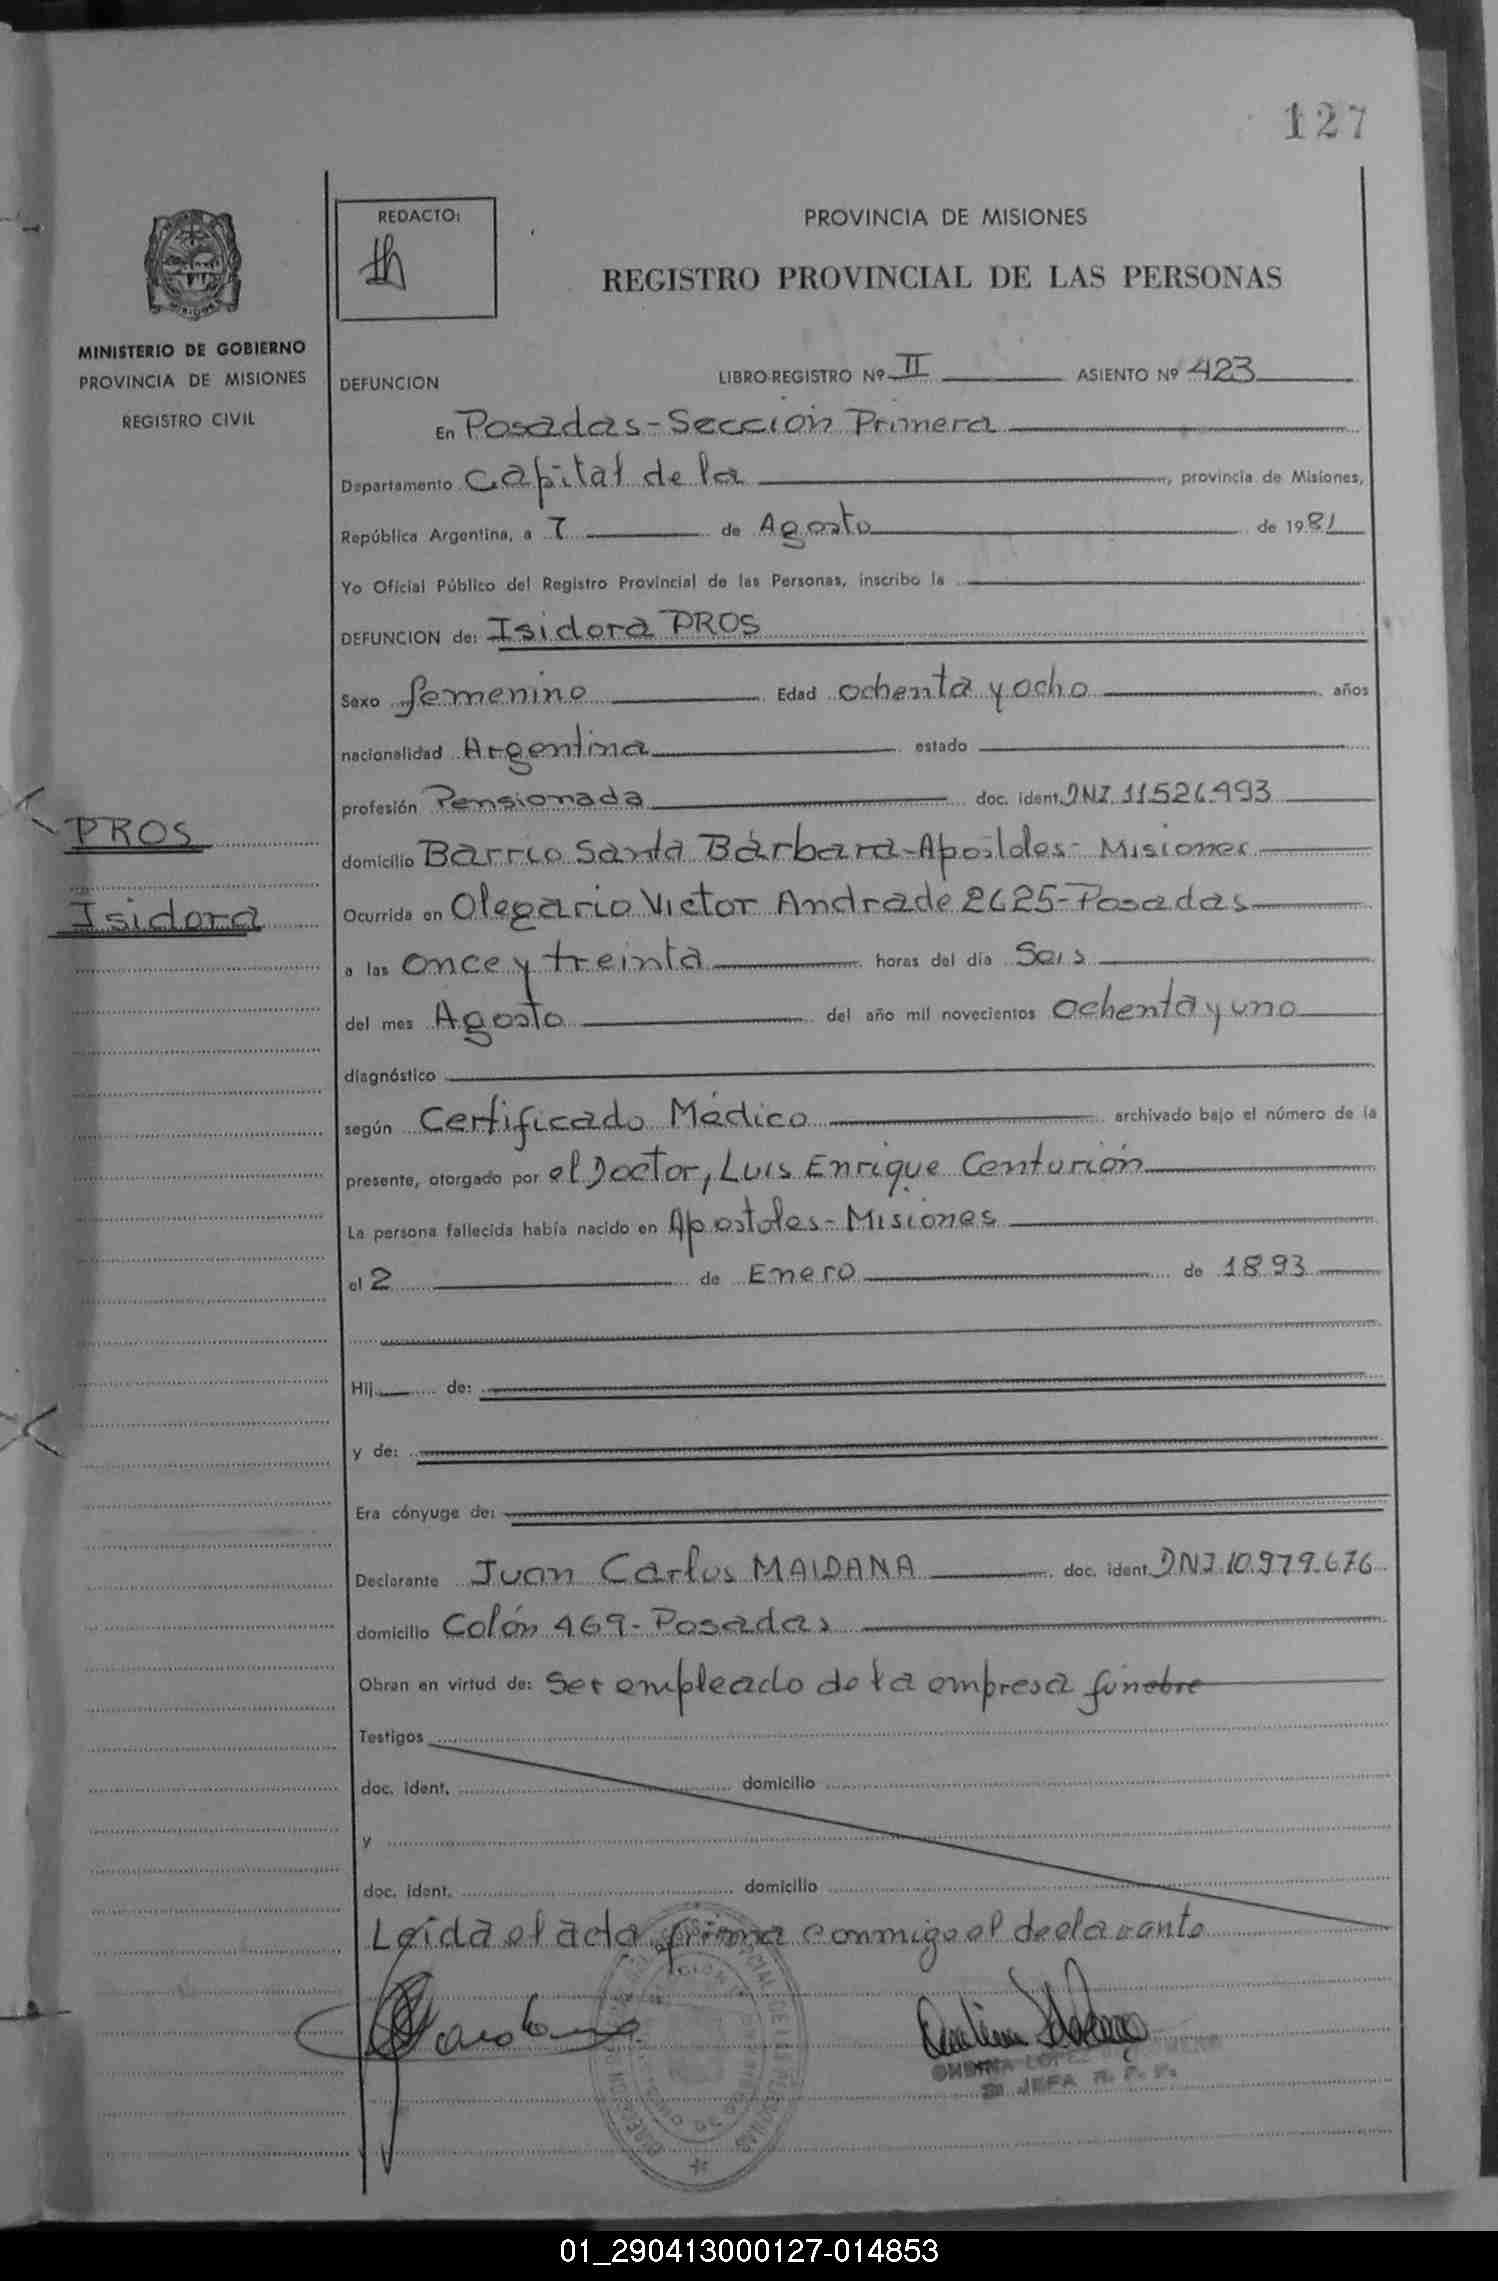 127
REDACTO:
PROVINCIA DE MISIONES
REGISTRO PROVINCIAL DE LAS PERSONAS
MINISTERIO DE GOBIERNO
PROVINCIA DE MISIONES
REGISTRO CIVIL
DEFUNCION LIBRO-REGISTRO Nº II ASIENTO Nº 423
En Posadas - Sección Primera
Departamento Capital de la, provincia de Misiones,
República Argentina, a 7 de Agosto de 1981
Yo Oficial Público del Registro Provincial de las Personas, inscribo la
DEFUNCION de: Isidora PROS
Sexo femenino Edad ochenta y ocho años
nacionalidad Argentina estado
profesión Pensionada doc. ident. DNI 11526.993
PROS
Isidora
domicilio Barrio Santa Bárbara - Apóstoles - Misiones
Ocurrida en Olegario Victor Andrade 2625 - Posadas
a las once y treinta horas del día Seis
del mes Agosto del año mil novecientos ochenta y uno
diagnóstico
según Certificado Médico archivado bajo el número de la
presente, otorgado por el Doctor, Luis Enrique Centurión
La persona fallecida había nacido en Apostoles - Misiones
el 2 de Enero de 1893
Hij de:
y de:
Era cónyuge de:
Declarante Juan Carlos MAIDANA doc. ident. DNI 10.979.676
domicilio Colón 469 - Posadas
Obran en virtud de: Ser empleado de la empresa fúnebre
Testigos
doc. ident. domicilio
y
doc. ident. domicilio
Leída el acta firma conmigo el declarante
JEFA R. P. P.
01_290413000127-014853